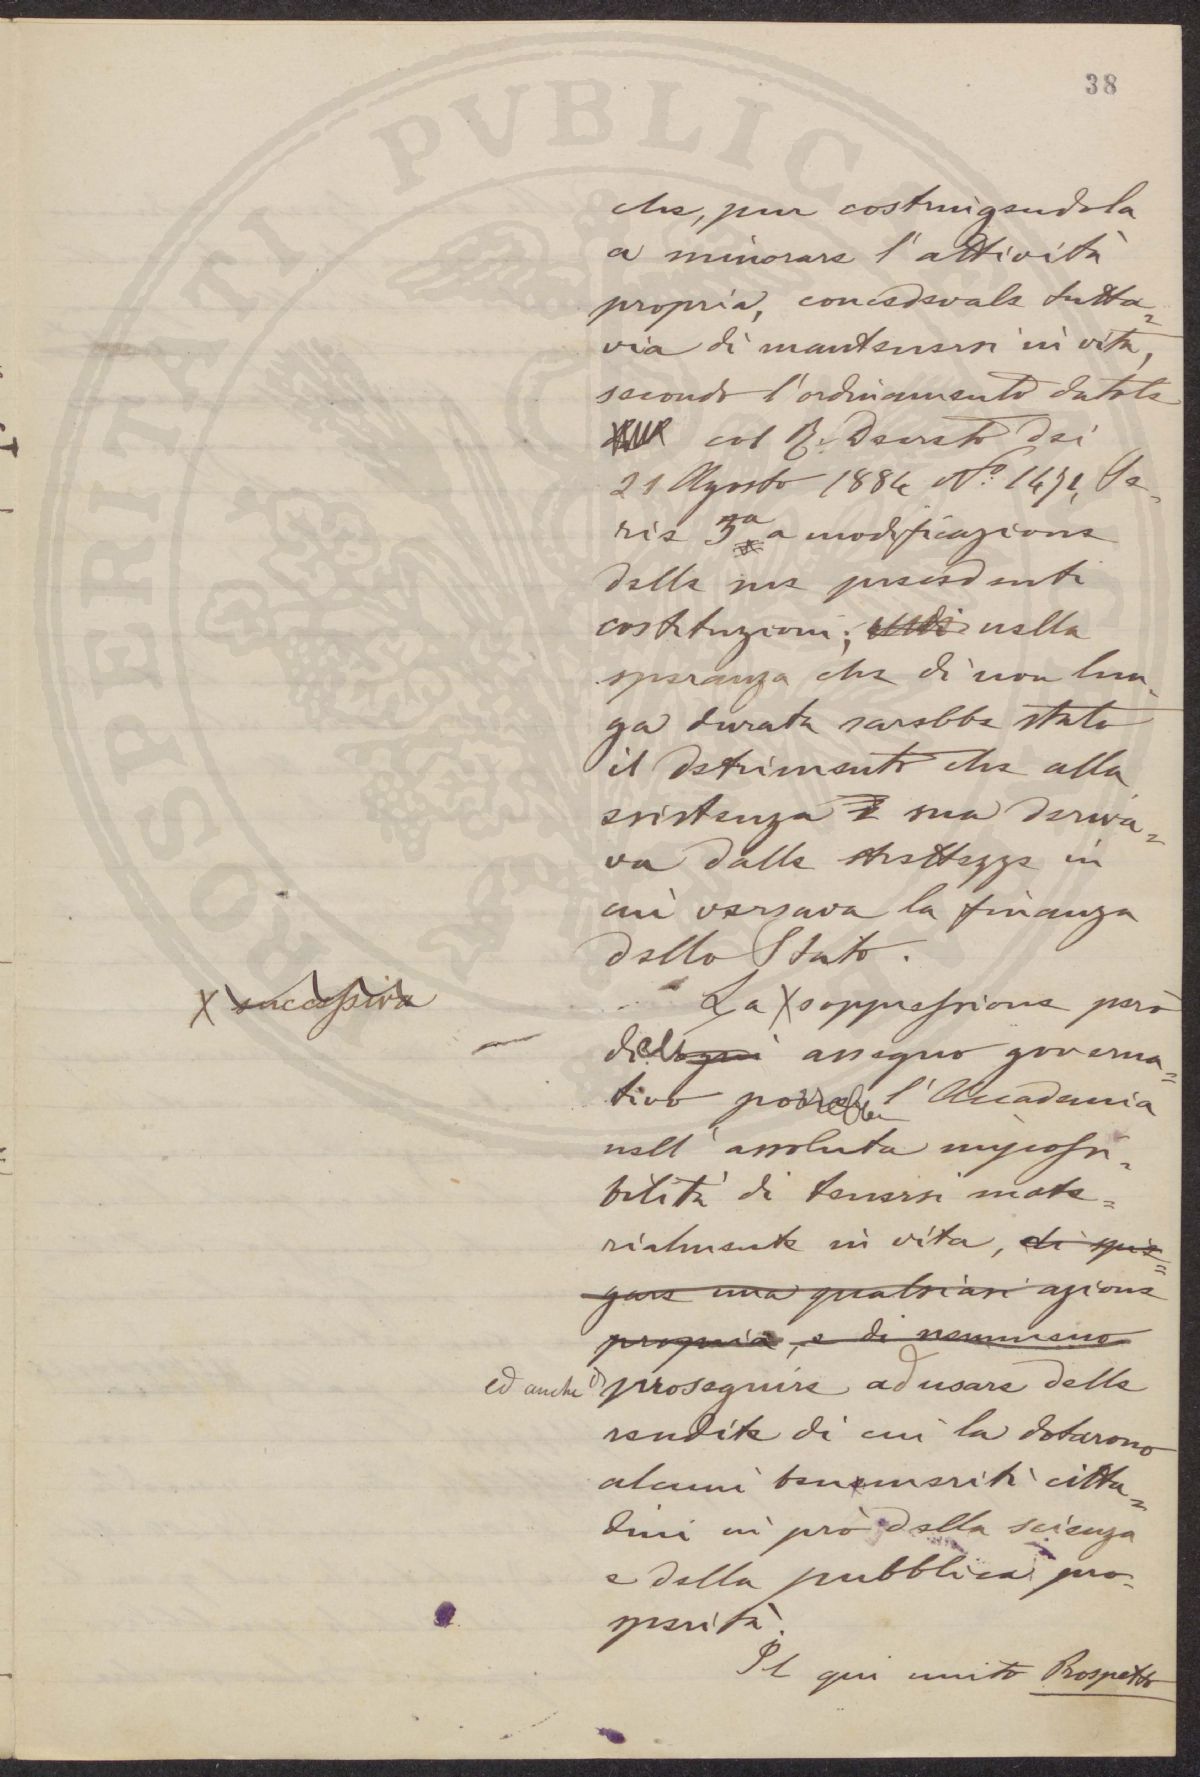 38
che, pur costringendola
a minorare l'attività
propria, concedevale tutta=
via di mantenersi in vita,
secondo l'ordinamento datole
col R. Decreto dei
21 Agosto 1884 N.º 1471, Se-
rie 3ª a modificazione
delle sue precedenti
costituzioni; nella
speranza che di non lun-
ga durata sarebbe stato
il detrimento che alla
esistenza sua deriva=
va dalle strettezze in
cui versava la finanza
dello Stato.
X successiva
La X soppressione però
dello ogni assegno governa=
tivo porrebbe l'Accademia
nell'assoluta impossi-
bilità di tenersi mate=
rialmente in vita, di spie=
gare una qualsiasi azione
propria, e di nemmeno
ed anche di proseguire ad usare delle
rendite di cui la dotarono
alcuni benemeriti citta=
dini in prò della scienza
e della pubblica pro-
sperità.
Il qui unito Prospetto
PROSPERITATI PVBLICAE